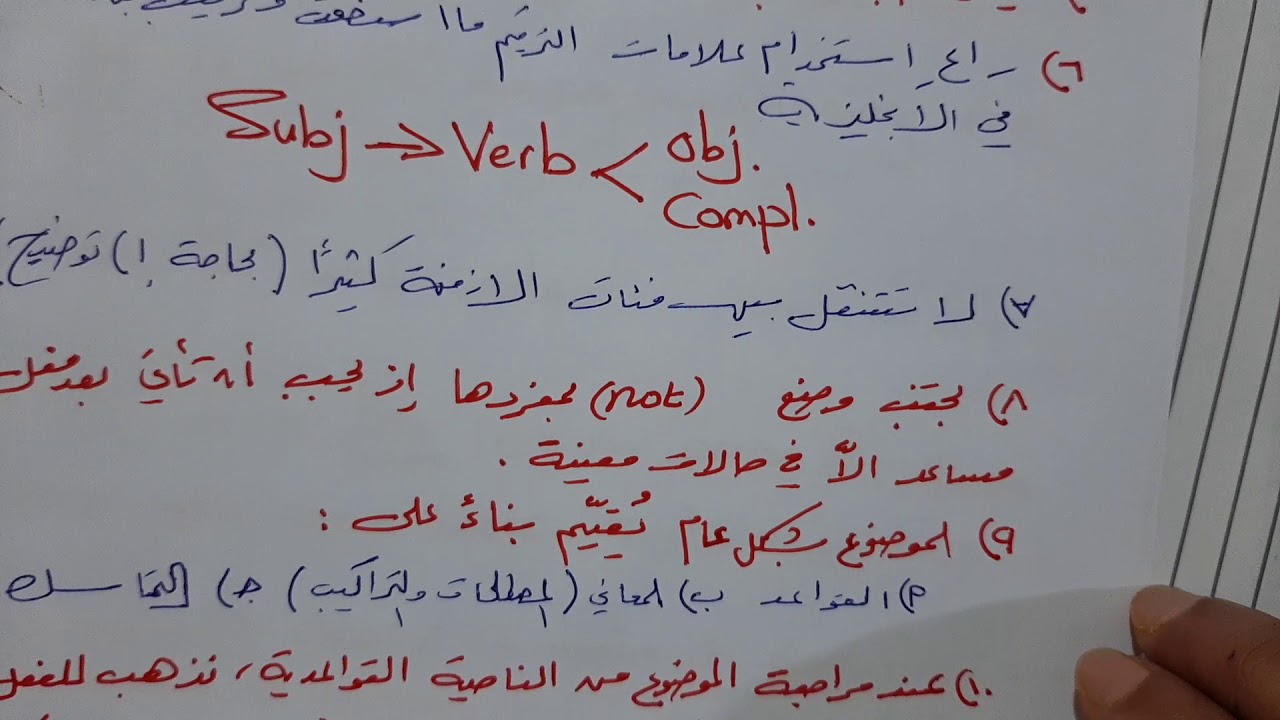 ٦) راعِ إستخدام علامات الترقيم ما استطعت
في الانجليزية
Subj → Verb < obj.
Compl.
٧) لا تتنقل بين فئات الازمنة كثيراً (بحاجة إ) توضيح)
٨) تجنب وضع (not) بمفردها إذ يجب أن تأتي بعد فعل
مساعد الاّ في حالات معينة .
٩) الموضوع بشكل عام يُقيّم بناءً على :
أ) القواعد ب) المعاني (المصطلحات والتراكيب) ج) التماسك
١٠) عند مراجعة الموضوع من الناحية القواعدية، نذهب للفعل